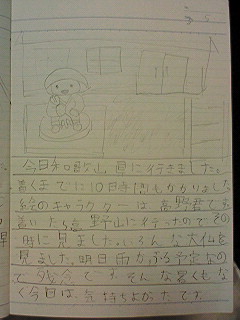 今日和歌山県に行きました。
着くまでに10時間もかかりました
絵のキャラクターは高野君です
着いたら高野山に行ったのでその
時に見ました。いろんな大仏を
見ました。明日雨がふる予定なの
で残念です。そんな暑くもな
く今日は気持ちよかったです